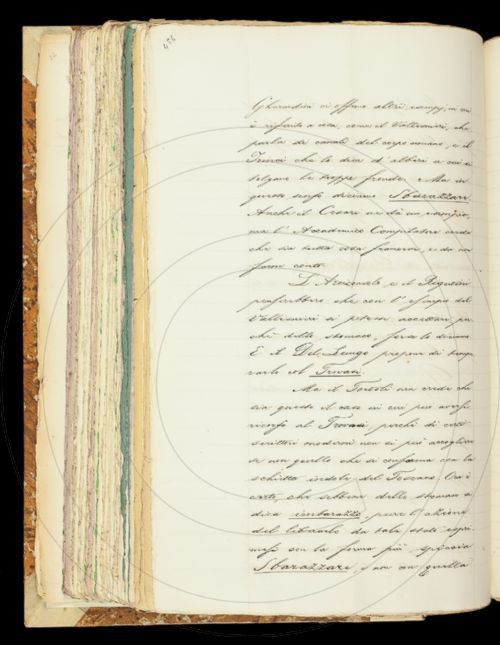 Gherardini ci offrono altri esempj, in cui
è riferito a cosa, come il Vallisnieri, che
parla di canali del corpo umano, e il
Trinci che lo dice d'alberi a cui si
tolgano le troppe frondi. Ma in
questo senso diciamo Sbarazzare
Anche il Cesari ne dà un esempio,
ma l'Accademico Compilatore crede
che sia tutta cosa francese, e da non
farne conto.
L'Arcangeli e il Rigutini
preferirebbero che con l'esempio del
Vallisnieri si potesse accettare, per
chè dello stomaco, forse lo diciamo.
E il Del Lungo propone di temp
rarlo col Trovasi.
Ma il Tortoli non crede che
sia questo il caso in cui può aversi
ricorso al Trovasi, perchè di certi
scrittori moderni non si può accogliere
se non quello che si conforma con la
schietta indole del Toscano. Ora è
certo, che sebbene dello stomaco si
dica imbarazzo, pure l'azione
del liberarlo da tale stato espri
mesi con la forma più spiccia
Sbarazzare, e non con quella